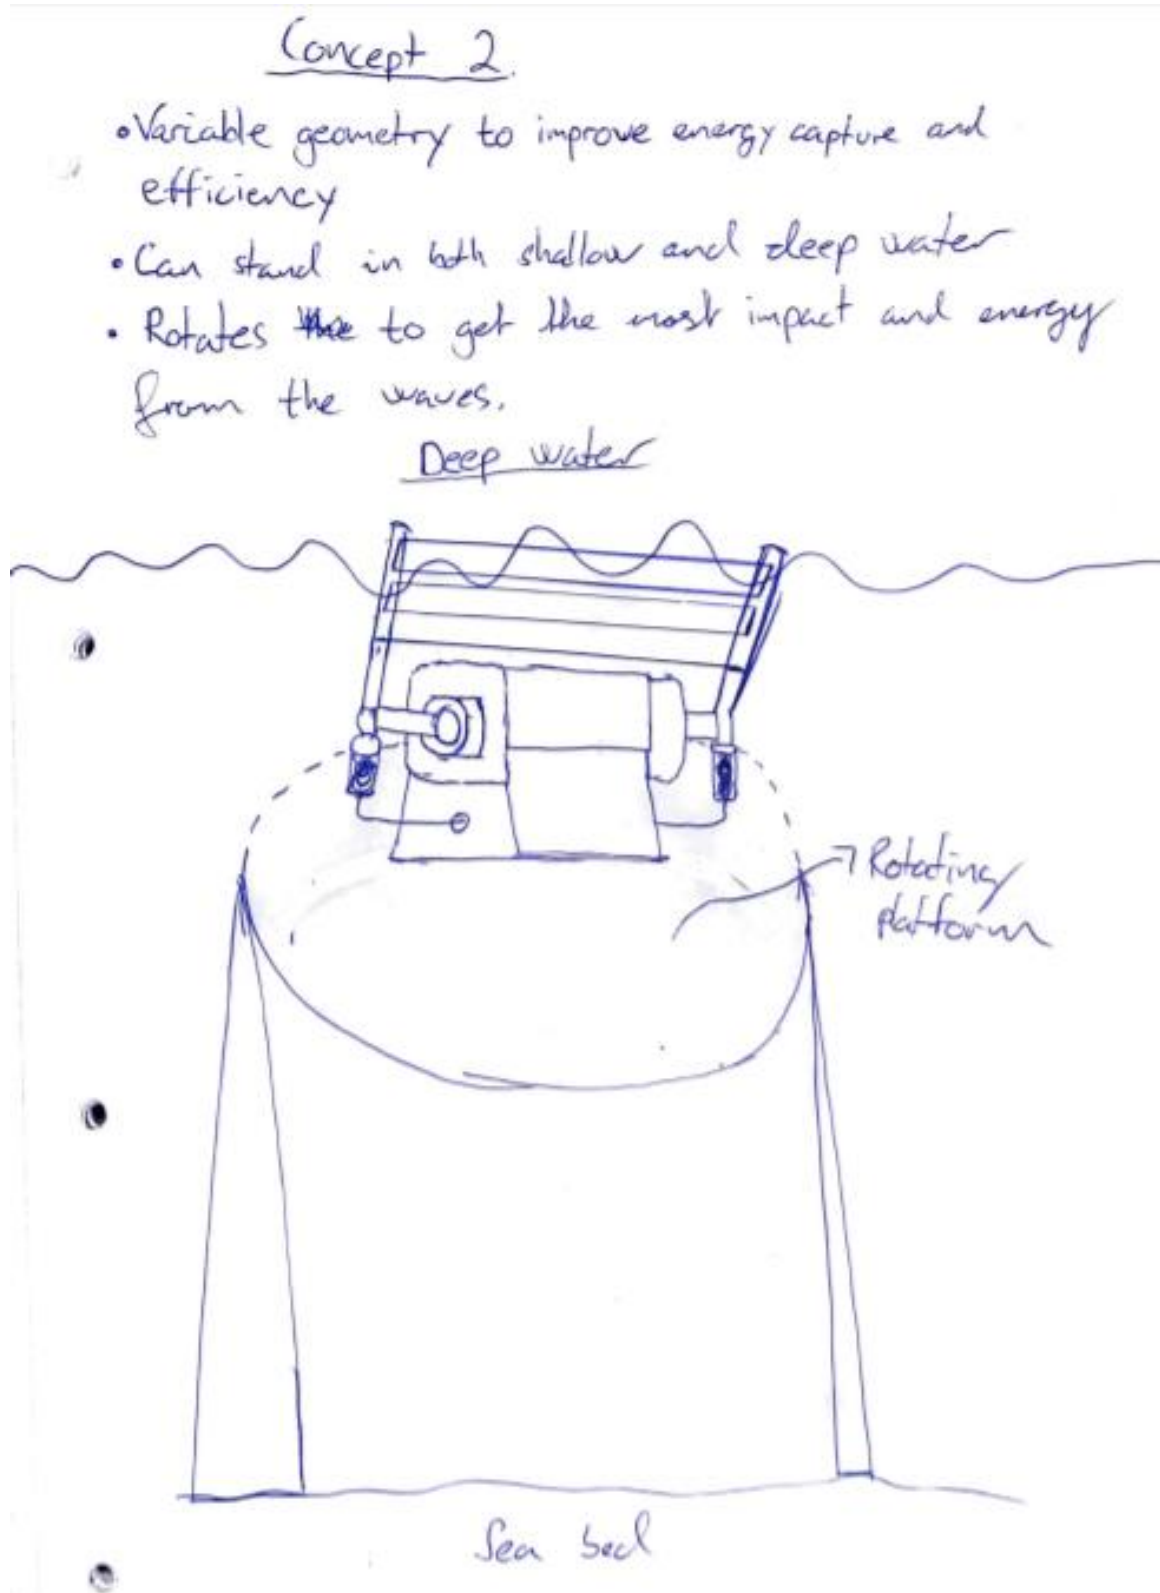 Concept 2.
• Variable geometry to improve energy capture and
efficiency
• Can stand in both shallow and deep water
• Rotates to get the most impact and energy
from the waves.
Deep water
Rotating
platform
Sea bed